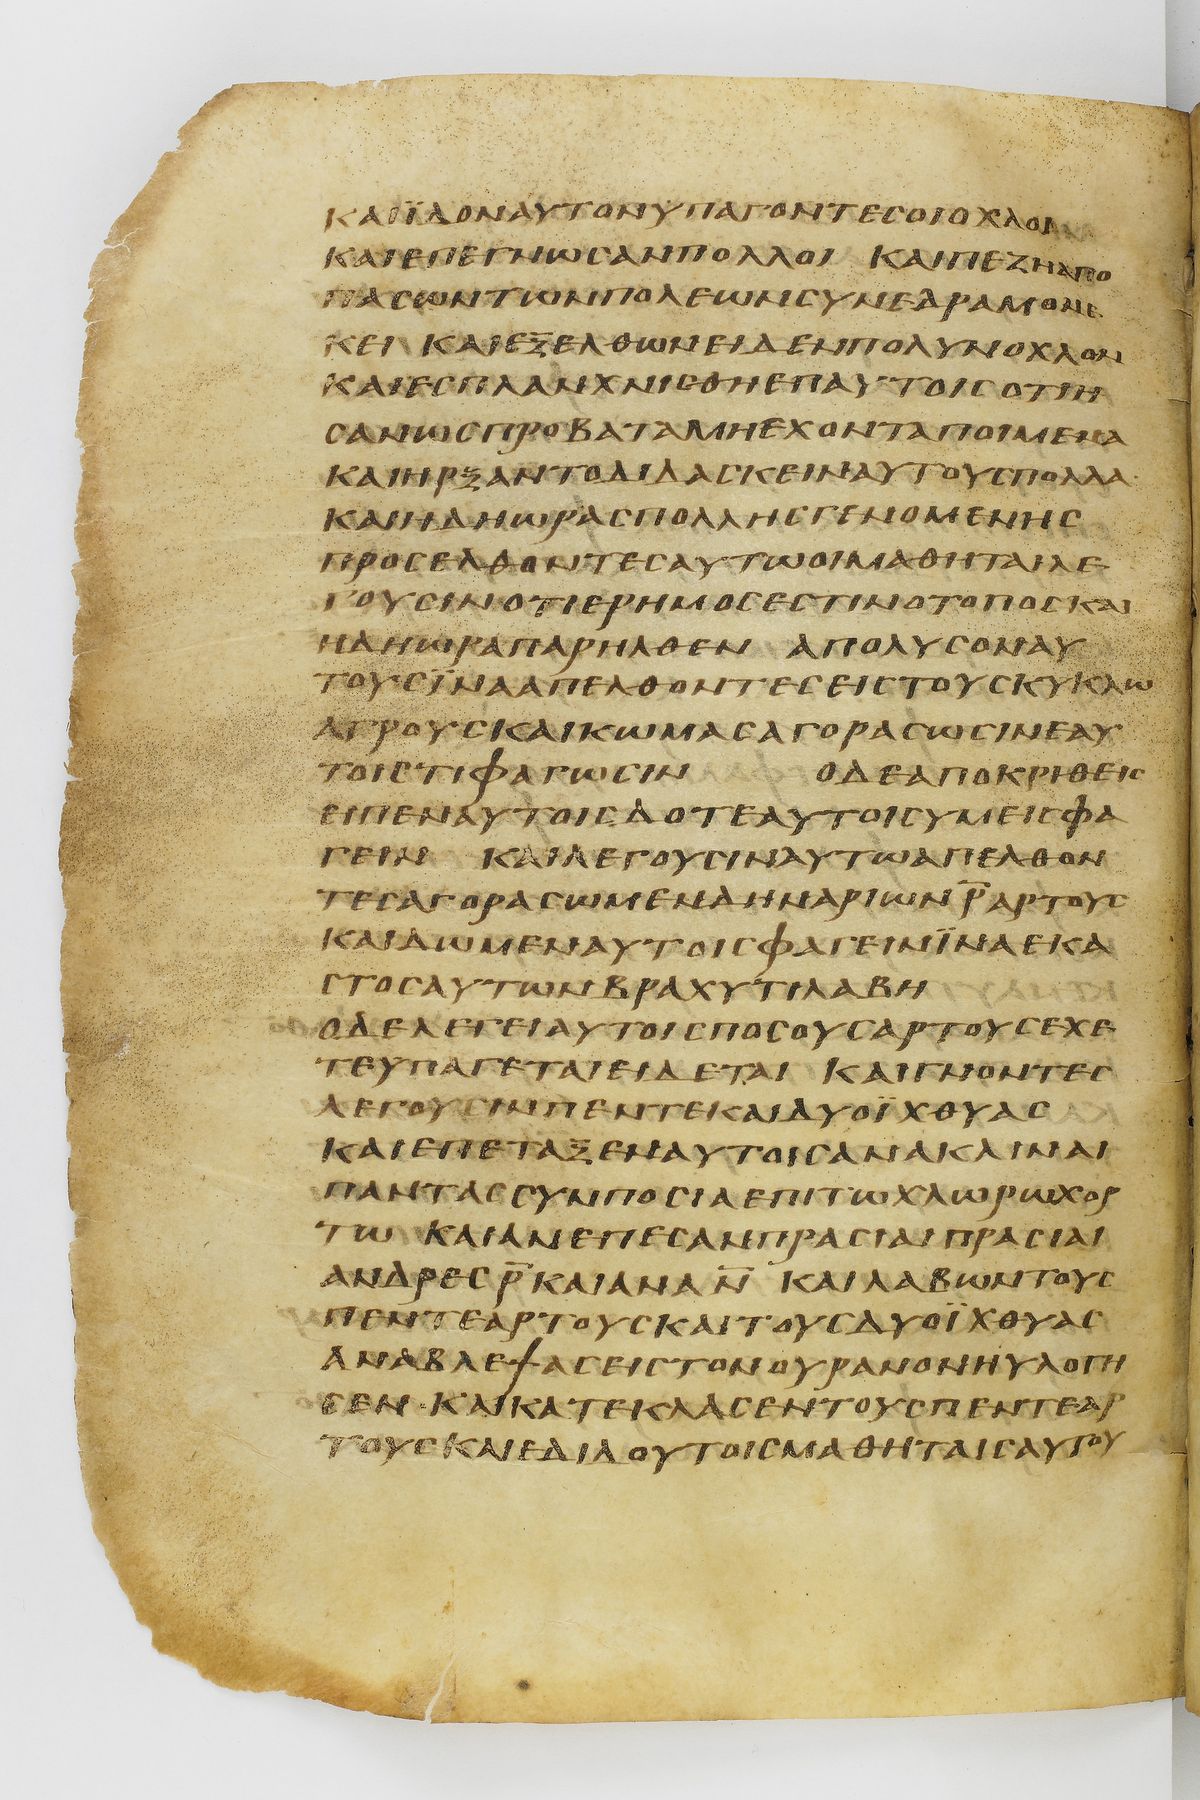 ΚΑΙΪΔΟΝΑΥΤΟΝΥΠΑΓΟΝΤΕΣΟΙΟΧΛΟΙ
ΚΑΙΕΠΕΓΝΩΣΑΝΠΟΛΛΟΙ ΚΑΙΠΕΖΗΑΠΟ
ΠΑΣΩΝΤΩΝΠΟΛΕΩΝΣΥΝΕΔΡΑΜΟΝΕ
ΚΕΙ ΚΑΙΕΞΕΛΘΩΝΕΙΔΕΝΠΟΛΥΝΟΧΛΟΝ
ΚΑΙΕΣΠΛΑΝΧΝΙΣΘΗΕΠΑΥΤΟΙΣΟΤΙΗ
ΣΑΝΩΣΠΡΟΒΑΤΑΜΗΕΧΟΝΤΑΠΟΙΜΕΝΑ
ΚΑΙΗΡΞΑΝΤΟΔΙΔΑΣΚΕΙΝΑΥΤΟΥΣΠΟΛΛΑ
ΚΑΙΗΔΗΩΡΑΣΠΟΛΛΗΣΓΕΝΟΜΕΝΗΣ
ΠΡΟΣΕΛΘΟΝΤΕΣΑΥΤΩΟΙΜΑΘΗΤΑΙΛΕ
ΓΟΥΣΙΝΟΤΙΕΡΗΜΟΣΕΣΤΙΝΟΤΟΠΟΣΚΑΙ
ΗΔΗΩΡΑΠΑΡΗΛΘΕΝ ΑΠΟΛΥΣΟΝΑΥ
ΤΟΥΣΪΝΑΑΠΕΛΘΟΝΤΕΣΕΙΣΤΟΥΣΚΥΚΛΩ
ΑΓΡΟΥΣΚΑΙΚΩΜΑΣΑΓΟΡΑΣΩΣΙΝΕΑΥ
ΤΟΙΣΤΙΦΑΓΩΣΙΝ ΟΔΕΑΠΟΚΡΙΘΕΙΣ
ΕΙΠΕΝΑΥΤΟΙΣΔΟΤΕΑΥΤΟΙΣΥΜΕΙΣΦΑ
ΓΕΙΝ ΚΑΙΛΕΓΟΥΣΙΝΑΥΤΩΑΠΕΛΘΟΝ
ΤΕΣΑΓΟΡΑΣΩΜΕΝΔΗΝΑΡΙΩΝΣ̅ΑΡΤΟΥΣ
ΚΑΙΔΩΜΕΝΑΥΤΟΙΣΦΑΓΕΙΝΪΝΑΕΚΑ
ΣΤΟΣΑΥΤΩΝΒΡΑΧΥΤΙΛΑΒΗ
ΟΔΕΛΕΓΕΙΑΥΤΟΙΣΠΟΣΟΥΣΑΡΤΟΥΣΕΧΕ
ΤΕΥΠΑΓΕΤΑΙΕΙΔΕΤΑΙ ΚΑΙΓΝΟΝΤΕΣ
ΛΕΓΟΥΣΙΝΠΕΝΤΕΚΑΙΔΥΟΪΧΘΥΑΣ
ΚΑΙΕΠΕΤΑΞΕΝΑΥΤΟΙΣΑΝΑΚΛΙΝΑΙ
ΠΑΝΤΑΣΣΥΝΠΟΣΙΑΕΠΙΤΩΧΛΩΡΩΧΟΡ
ΤΩ ΚΑΙΑΝΕΠΕΣΑΝΠΡΑΣΙΑΙΠΡΑΣΙΑΙ
ΑΝΔΡΕΣΡ̅ΚΑΙΑΝΑΝ̅ ΚΑΙΛΑΒΩΝΤΟΥΣ
ΠΕΝΤΕΑΡΤΟΥΣΚΑΙΤΟΥΣΔΥΟΪΧΘΥΑΣ
ΑΝΑΒΛΕΨΑΣΕΙΣΤΟΝΟΥΡΑΝΟΝΗΥΛΟΓΗ
ΣΕΝ ΚΑΙΚΑΤΕΚΛΑΣΕΝΤΟΥΣΠΕΝΤΕΑΡ
ΤΟΥΣΚΑΙΕΔΙΔΟΥΤΟΙΣΜΑΘΗΤΑΙΣΑΥΤΟΥ